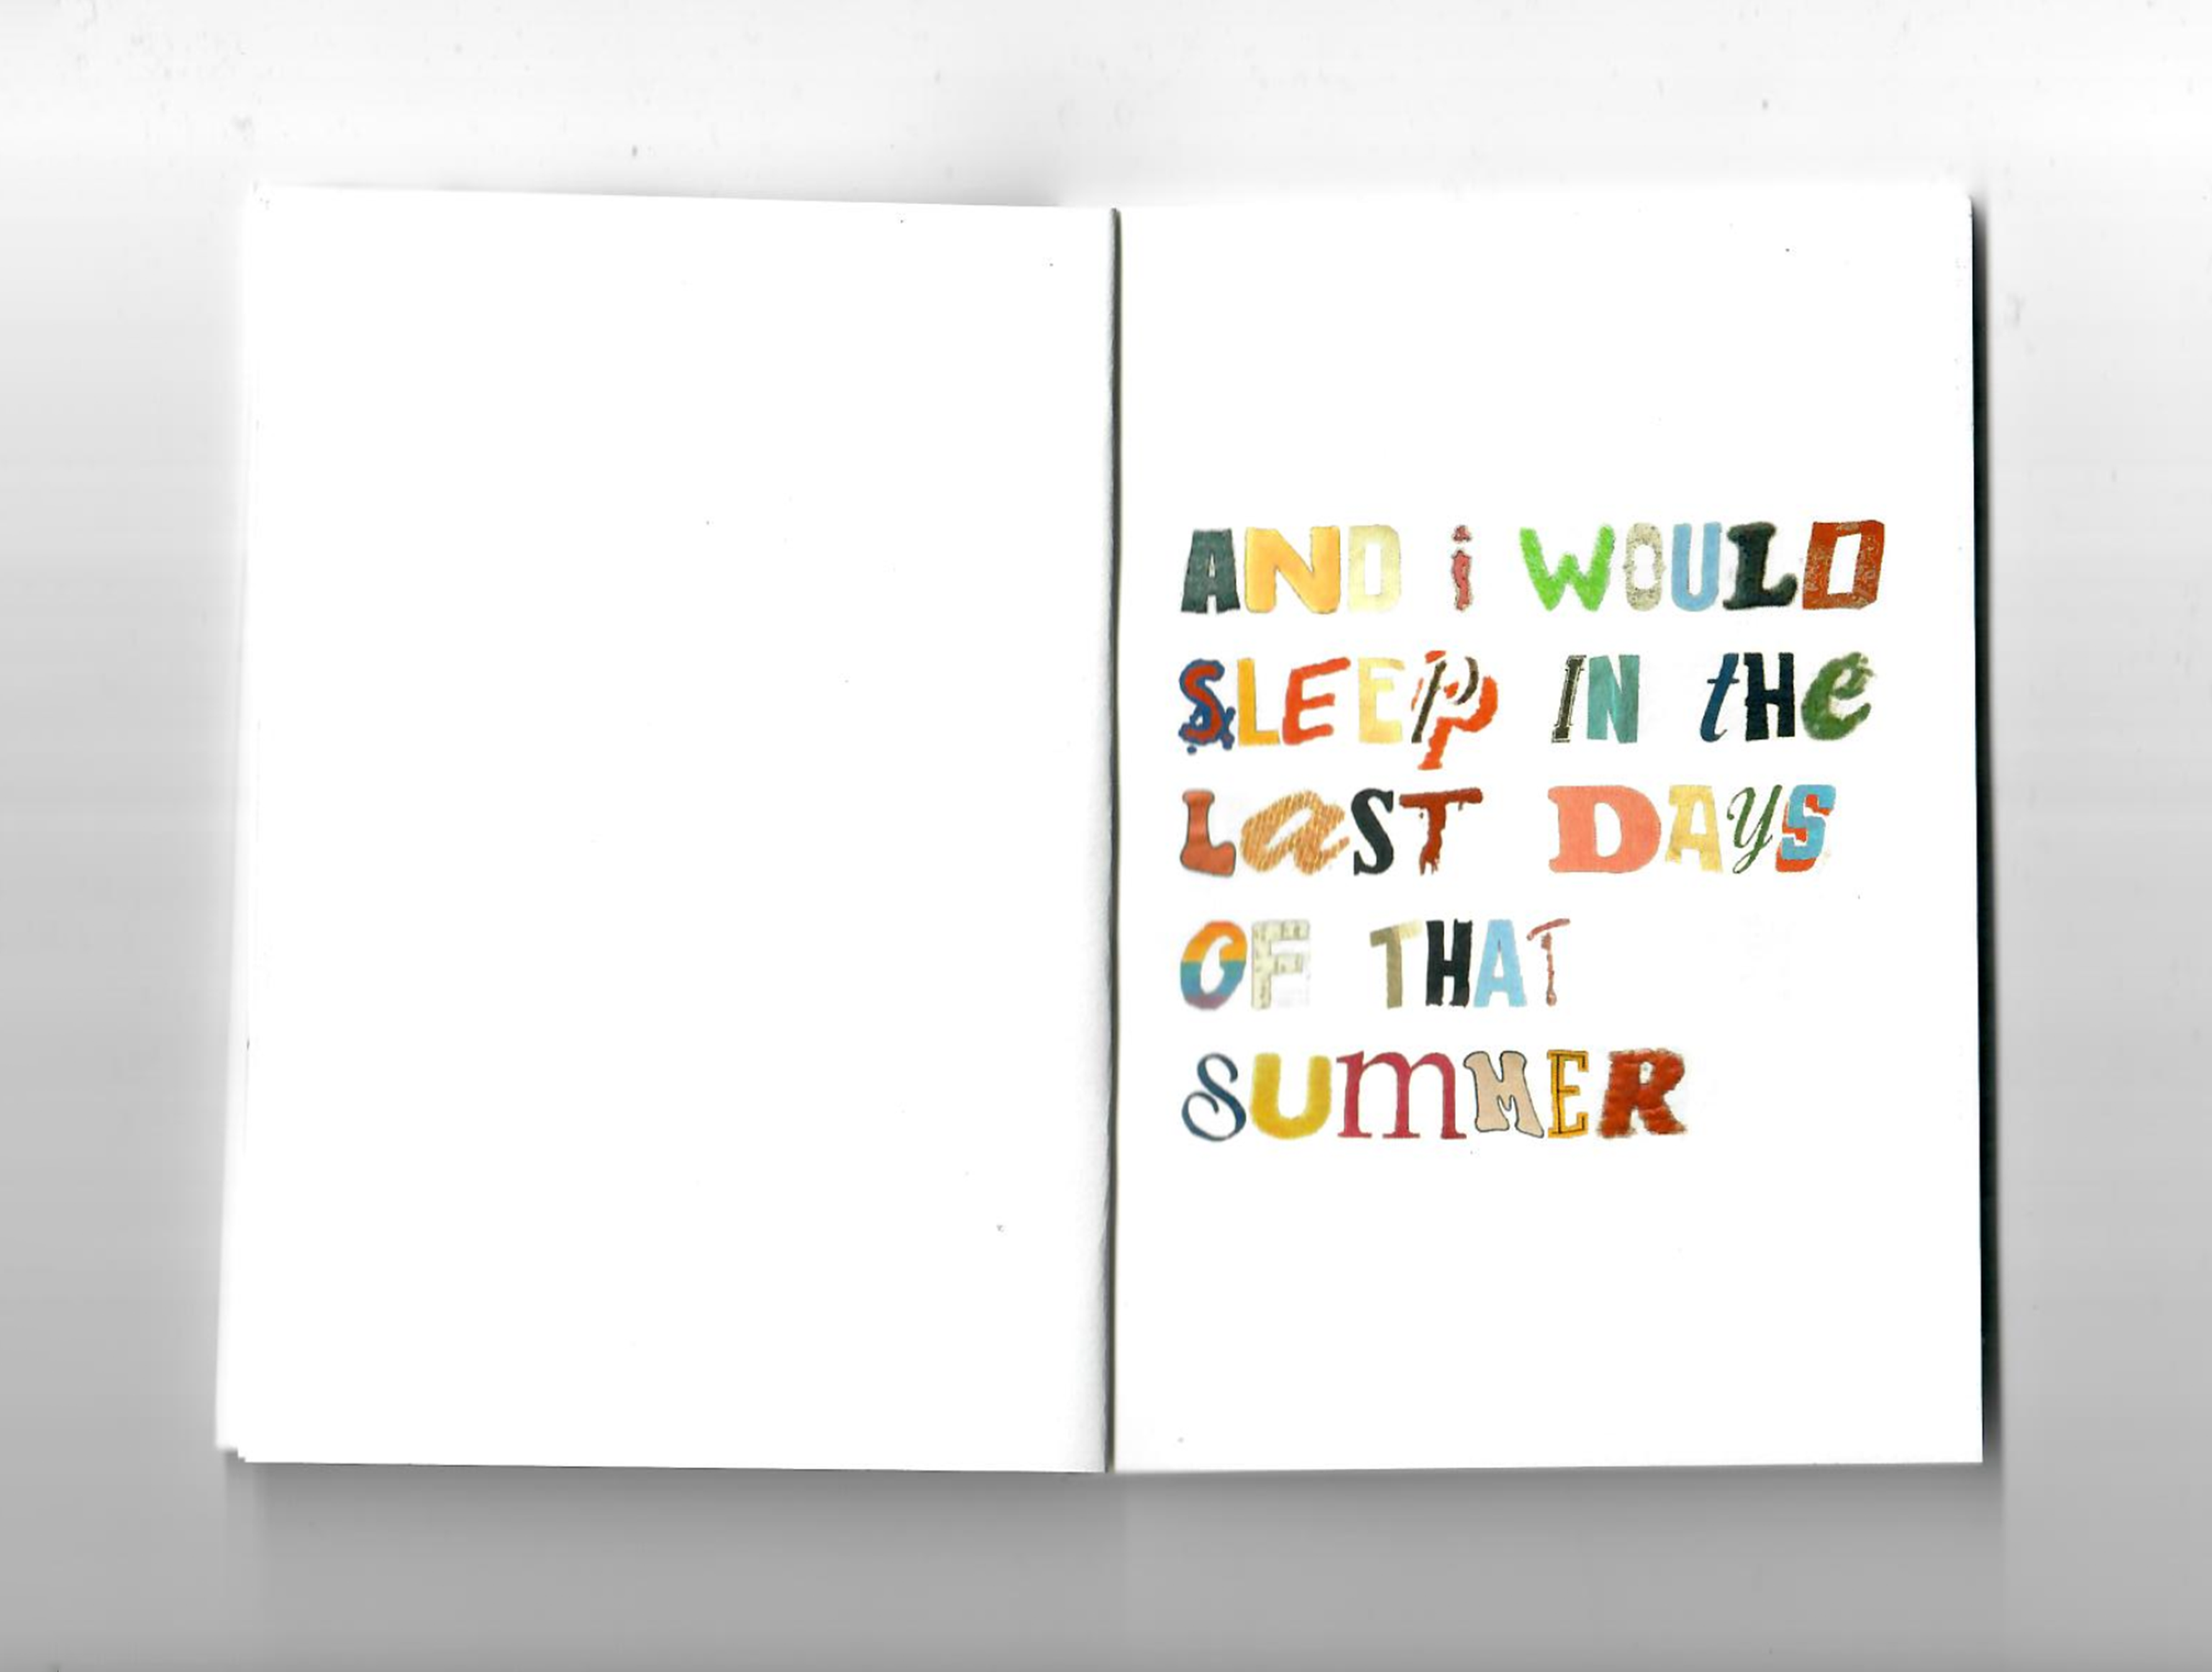 AND i WOULD
SLEEP IN tHe
LaST DAyS
OF THAT
SUmMER